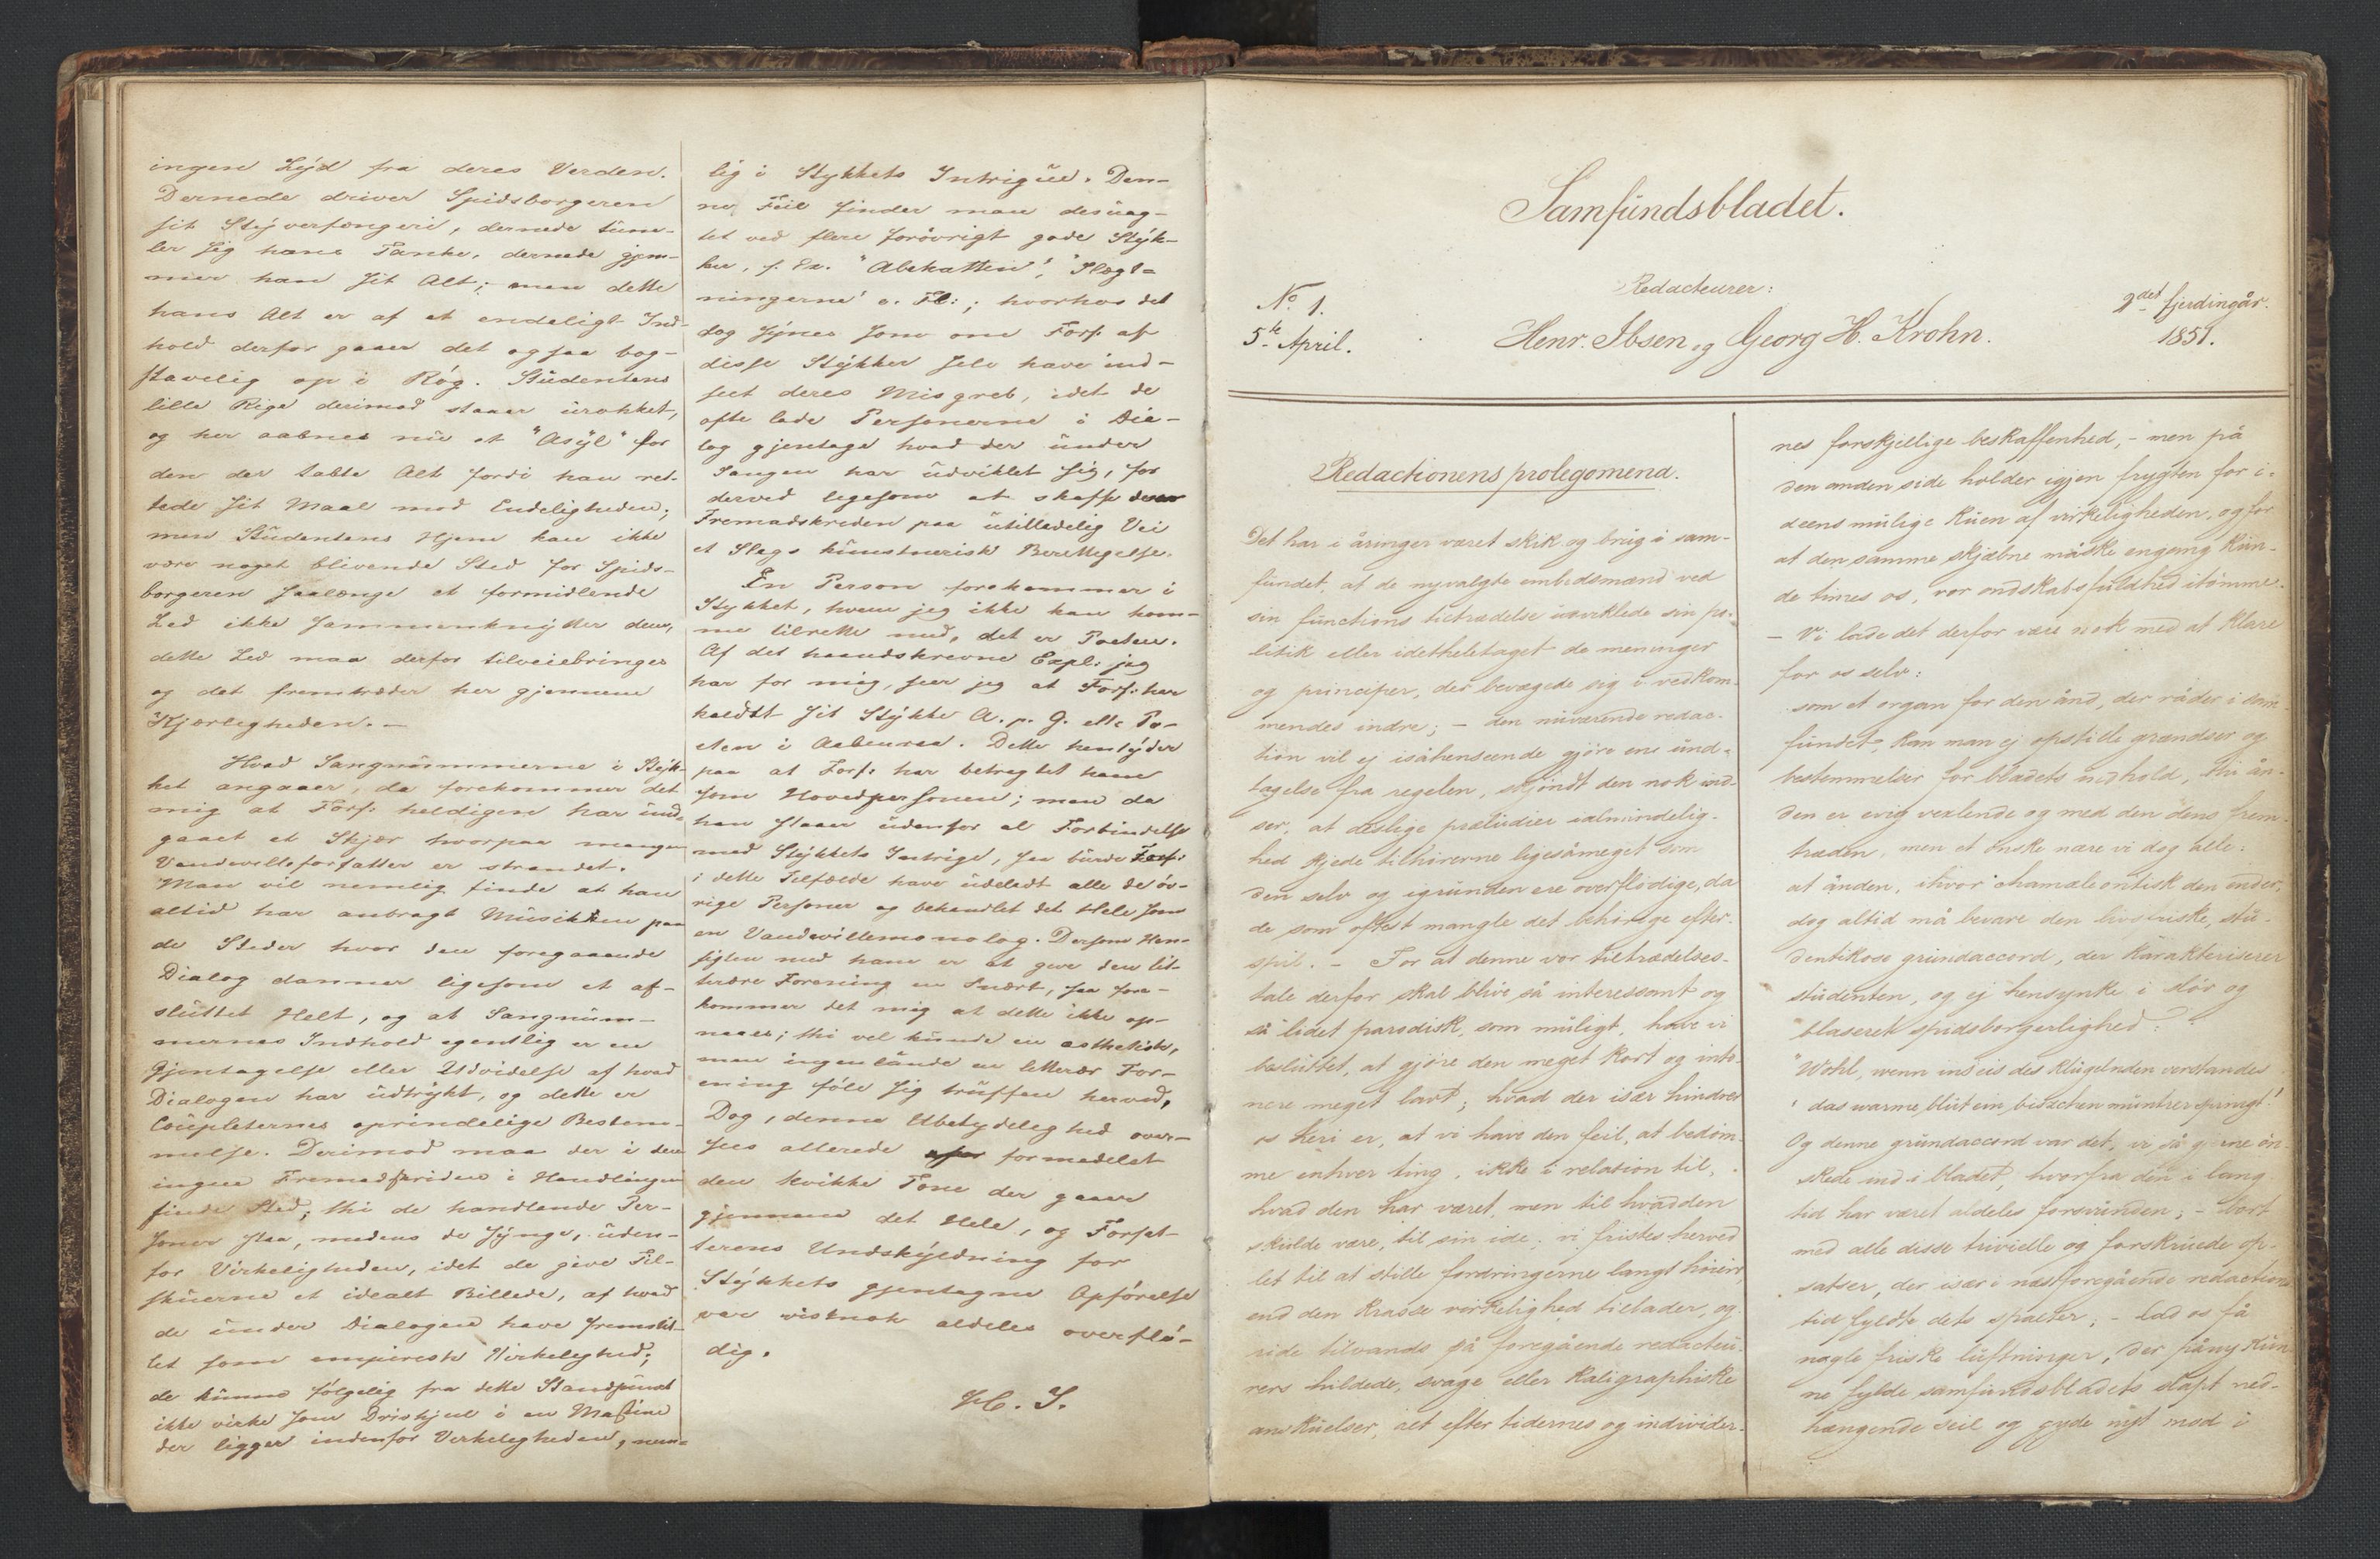 ingen Lÿd fra deres Verden.
Dernede driver Spidsborgeren
sit Stÿverfængeri, dernede tum-
ler sig hans Tanke, dernede gjem-
mer han sit Alt; men dette
hans Alt er af et endeligt Ind-
hold derfor gaaer det ogsaa bog-
stavelig op i Røg. Studentens
lille Rige derimod staaer urokket,
og her aabnes nu et "Asÿl" for
den der tabte Alt fordi han ret-
tede sit Maal mod Endeligheden;
men Studentens Hjem kan ikke
være noget blivende Sted for Spids-
borgeren saalænge et formidlende
Led ikke sammenknÿtter dem,
dette Led maa derfor tilveiebringes
og det fremtræder her gjennem
Kjærligheden. —
Hvad Sangnummerne i Stÿk-
ket angaaer, da forekommer det
mig at Forf: heldigen har und-
gaaet et Skjær hvorpaa mangen
Vaudevilleforfatter er strandet.
Man vil nemlig finde at han
altid har anbragt Musikken paa
de Steder hvor den foregaaende
Dialog danner ligesom et af-
sluttet Helt, og at Sangnum-
mernes Indhold egentlig er en
Gjentagelse eller Udvidelse af hvad
Dialogen har udtrÿkt, og dette er
Coupleternes oprindelige Bestem-
melse. Derimod maa der i dem
ingen Fremadskriden i Handlingen
finde Sted; thi de handlende Per-
soner staa, medens de sÿnge, uden-
for Virkeligheden, idet de give Til-
skuerne et idealt Billede, af hvad
de under Dialogen have fremstil-
let som empirisk Virkelighed;
de kunne følgelig fra dette Standpunct
ikke virke som Drivhjul i en Maskine
der ligger indenfor Virkeligheden, nem-
lig i Stykkets Intrigue. Den-
ne Feil finder man desuag-
tet ved flere forøvrigt gode Stÿk-
ker, f. Ex. "Abekatten", "Slægt-
ningerne" o. Fl:; hvorhos det
dog sÿnes som om Forf. af
disse Stÿkker selv have ind-
seet deres Misgreb, idet de
ofte lade Personerne i Dia-
log gjentage hvad der under
Sangen har udviklet sig, for
derved ligesom at skaffe denne
Fremadskriden paa utilladelig Vei
et Slags kunstnerisk Berettigelse.
En Person forekommer i
Stykket, hvem jeg ikke kan kom-
me tilrette med, det er Poeten.
Af det haandskrevne Expl: jeg
har for mig, seer jeg at Forf: har
kaldt sit Stÿkke A. p. G. elle Po-
eten i Aabenraa. Dette hentÿder
paa at Forf: har betragtet ham
som Hovedpersonen; men da
han staaer udenfor al Forbindelse
med Stÿkkets Intrige, saa burde Forf:
i dette Tilfælde have udeladt alle de øv-
rige Personer og behandlet det Hele som
en Vaudevillemonolog. Dersom Hen-
sigten med ham er at give den lit-
terære Forening en Snært, saa fore-
kommer det mig at dette ikke op-
naaes; thi vel kunde en æsthetisk,
men ingenlunde en litterær For-
ening føle sig truffen herved,
Dog, denne Ubetydelighed over-
sees allerede formedelst
den kvikke Tone der gaaer
gjennem det Hele, og Forfat-
terens Undskÿldning for
Stÿkkets gjentagne Opførelse
var vistnok aldeles overflø-
dig.
Samfundsbladet.
Redacteurer:
No. 1.
5te April.
Henr. Ibsen og Georg H. Krohn.
2det fjerdingår.
1851.
Redactionens prolegomena.
Det har i åringer været skik og brug i sam-
fundet, at de nyvalgte embedsmænd ved
sin functions tiltrædelse udviklede sin po-
litik eller idetheletaget de meninger
og principer, der bevægede sig i vedkom-
mendes indre; – den nuværende redac-
tion vil ej isåhenseende gjøre en und-
tagelse fra regelen, skjøndt den nok ind-
ser, at deslige præludier i almindelig-
hed kjede tilhørerne ligesåmeget som
den selv og igrunden ere overflødige, da
de som oftest mangle det behørige efter-
spil. – For at denne vor tiltrædelses-
tale derfor skal blive så interessant og
så lidet parodisk, som muligt, have vi
besluttet, at gjøre den meget kort og inte
nere meget lavt; hvad der især hindrer
os heri er, at vi have den feil, at bedøm-
me enhver ting, ikke i relation til,
hvad den har været, men til hvad den
skulde være, til sin ide; vi fristes herved
let til at stille fordringerne langt høiere,
end den krasse virkelighed tillader, og
ride tilvands på foregående redacteu-
rers hildede, svage eller kaligraphiske
anskuelser, alt efter tidernes og individer-
nes forskjellige beskaffenhed, – men på
den anden side holder igjen frygten for i-
deens mulige kuen af virkeligheden, og for
at den samme skjæbne måske engang kun-
de times os, vor ondskabsfuldhed itømme.
– Vi lade det derfor være nok med at klare
for os selv:
som et organ for den ånd, der råder i sam-
fundet, kan man ej opstille grændser og
bestemmelser for bladets indhold, thi ån-
den er evig vexlende og med den dens frem-
træden, men et ønske nære vi dog alle:
at ånden, ihvor chamæleontisk den end er,
dog altid må bevare den livsfriske, stu-
dentikose grundaccord, der karakteriserer
studenten, og ej hensynke i sløv og
blaseret spidsborgerlighed:
"Wohl, wenn ins eis des klügelnden verstandes
das warme blut ein bisschen muntrer springt!"
Og denne grundaccord var det, vi så gjerne øn-
skede ind i bladet, hvorfra den i lang
tid har været aldeles forsvunden; – bort
med alle disse trivielle og forskruede op-
satser, der især i næstforegående redactions
tid fyldte dets spalter; – lad os få
nogle friske luftninger, der påny kun-
ne fylde samfundsbladets slapt ned-
hængende seil og gyde nyt mod i